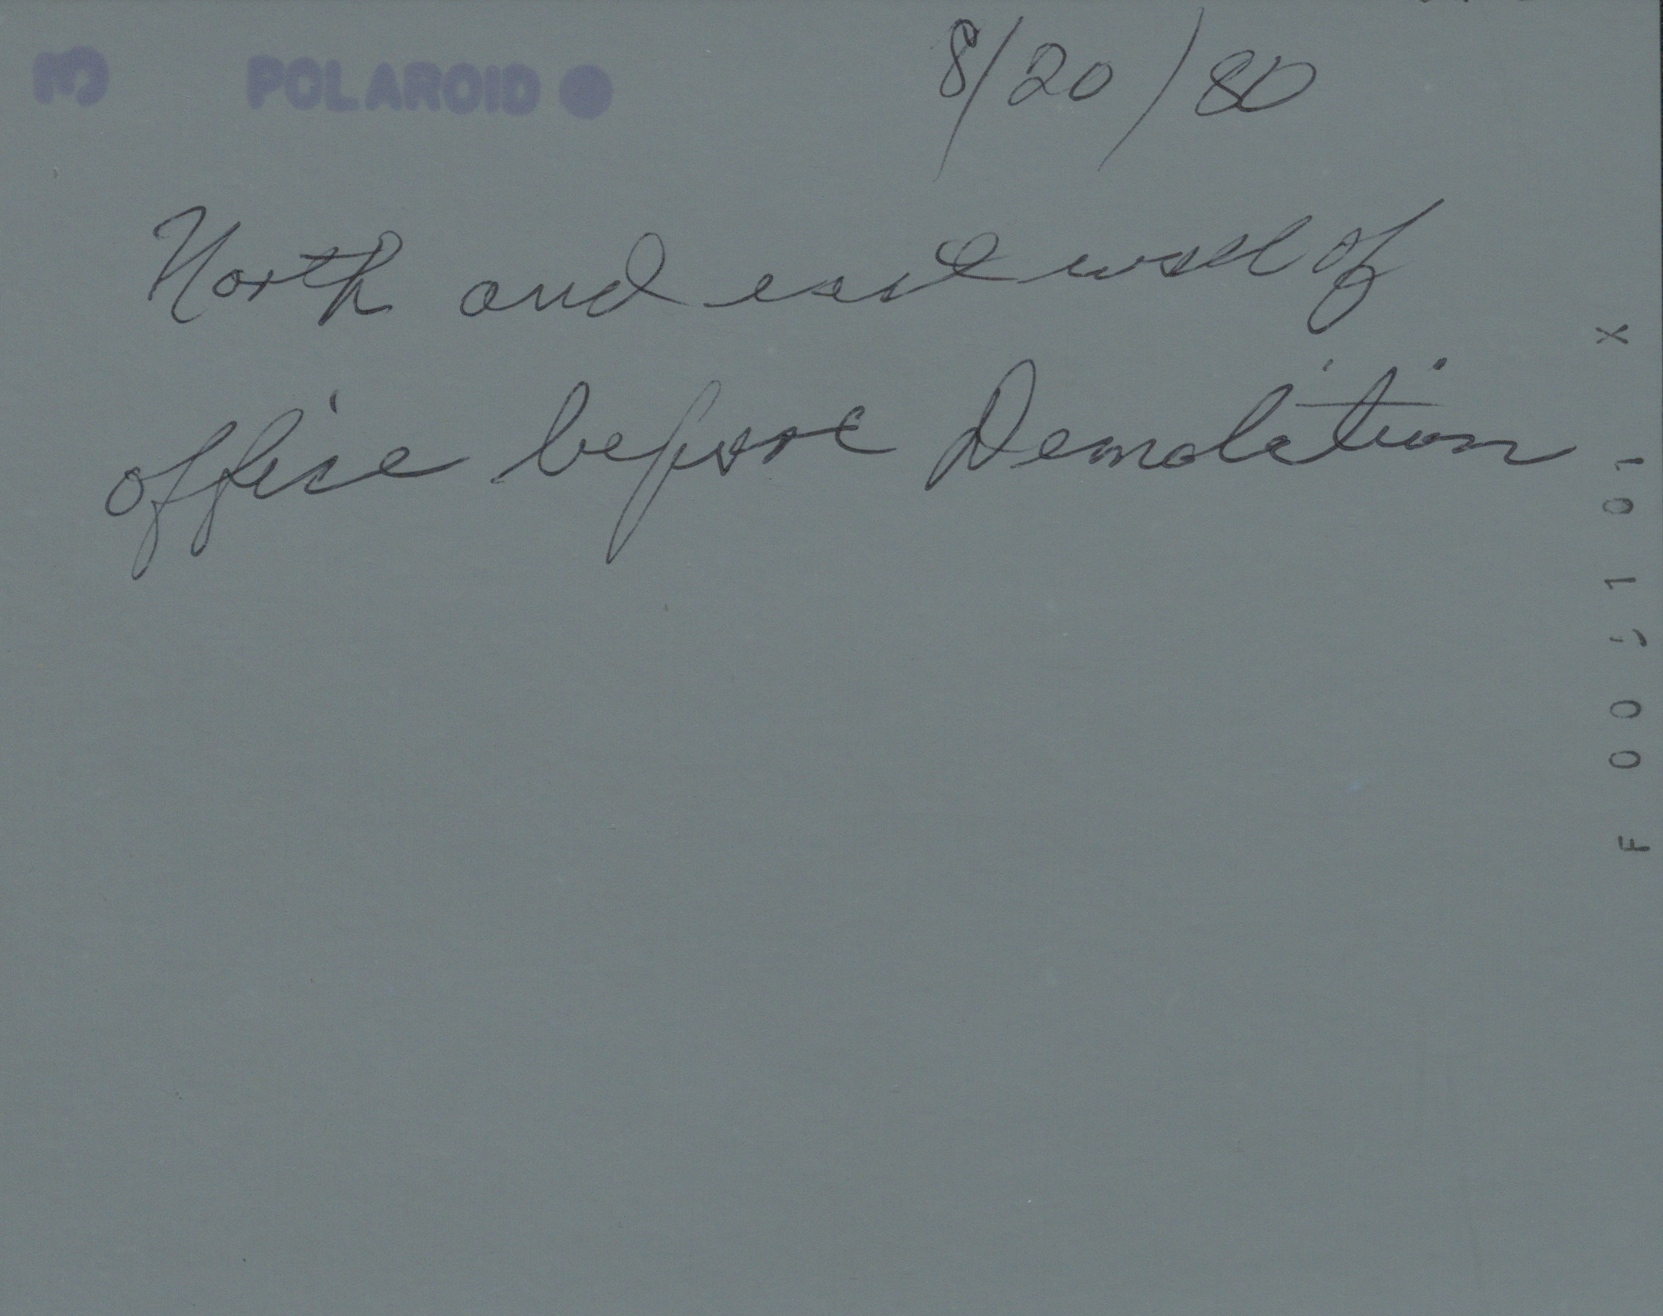 POLAROID ●
8/20/80
North and east wall of
office before Demolition